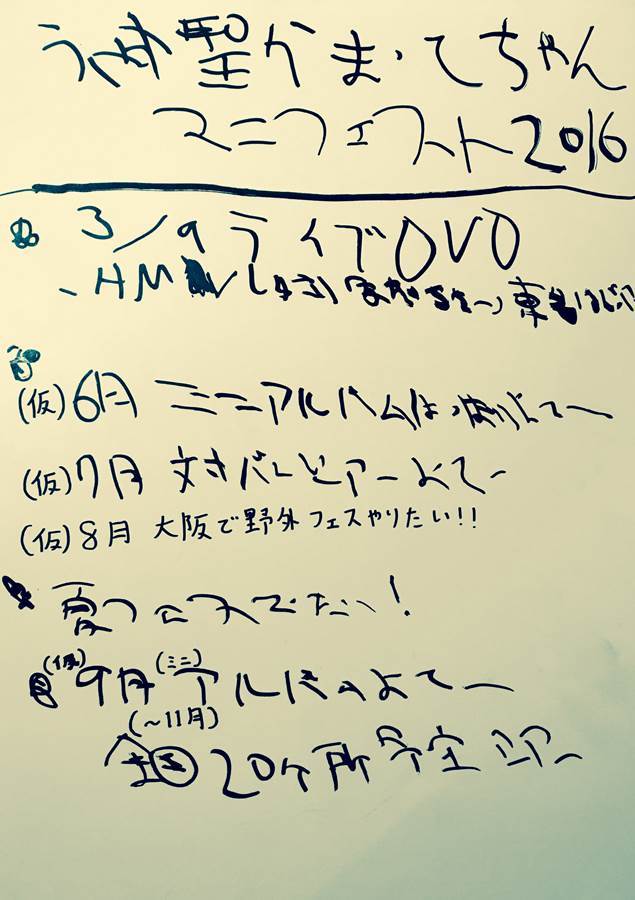 うみ聖かまってちゃん
マニフェスト2016
3/9 ライブDVD
、HMV
(仮)6月 ミニアルバムは
(仮)7月 対バンツアーよてー
(仮)8月 大阪で野外フェスやりたい!!
夏フェスでたい!
(仮)9月(ミニ)アルバムよてー
(～11月)
全国20ケ所予定ツアー